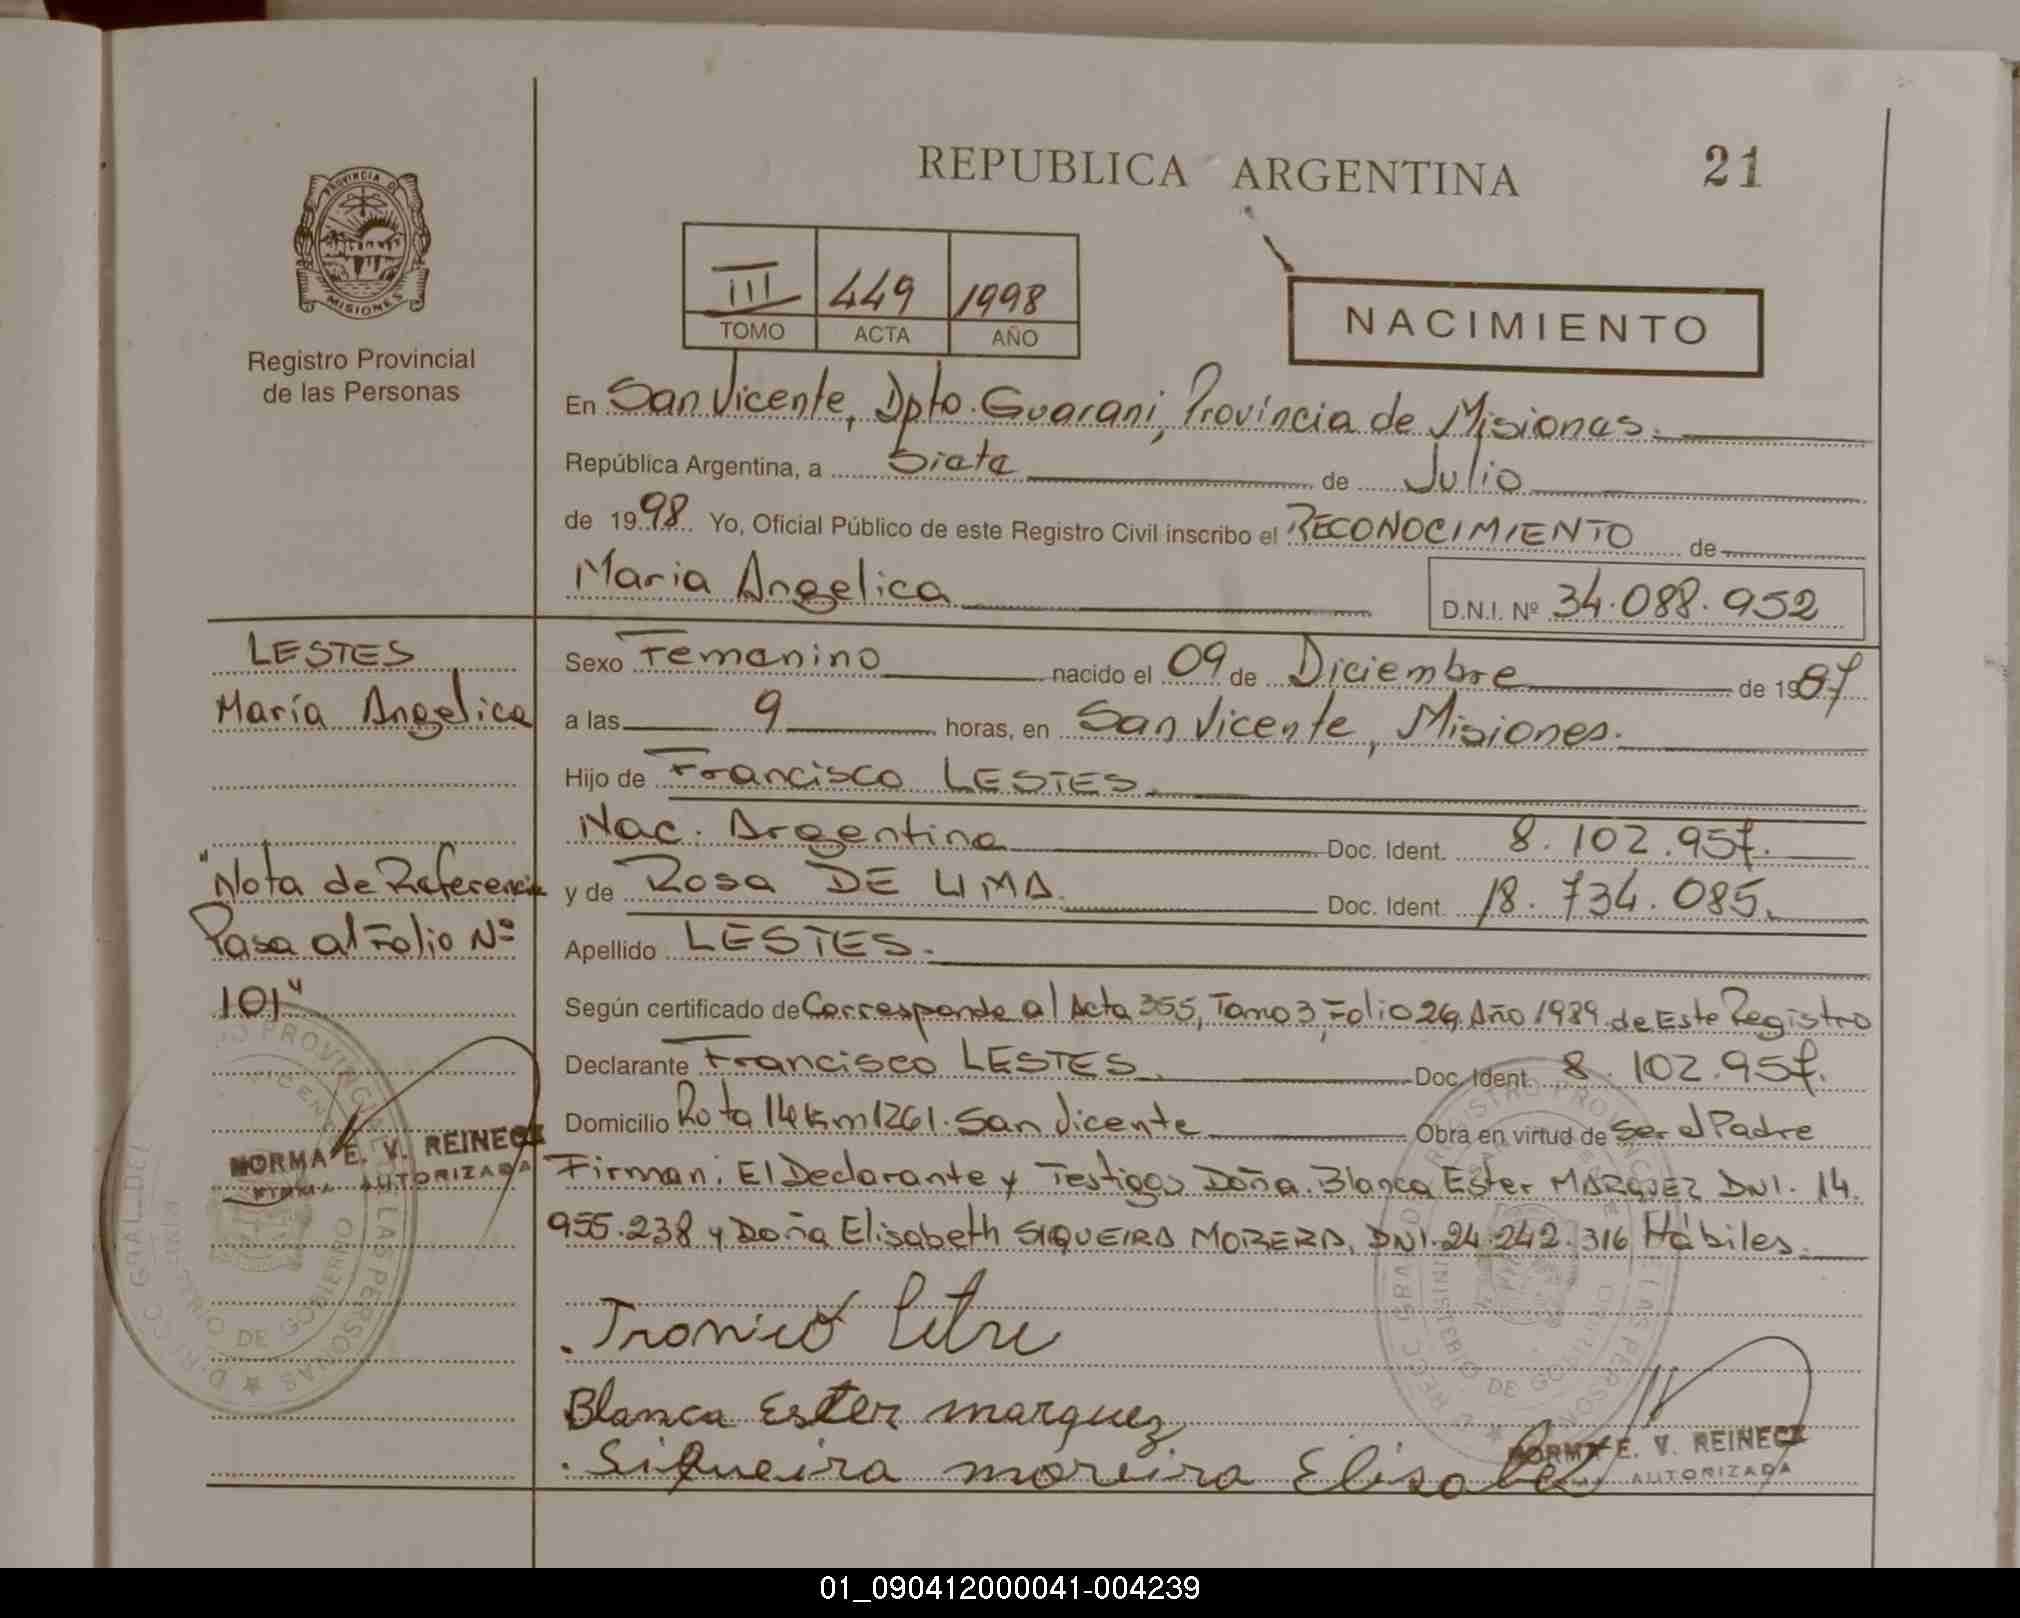 REPUBLICA ARGENTINA
21
PROVINCIA DE
MISIONES
Registro Provincial
de las Personas
III 449 1998
TOMO ACTA AÑO
NACIMIENTO
En San Vicente, Dpto. Guarani, Provincia de Misiones.
República Argentina, a Siete de Julio
de 1998 Yo, Oficial Público de este Registro Civil inscribo el RECONOCIMIENTO de
Maria Angelica
D.N.I. Nº 34.088.952
LESTES
María Angelica
"Nota de Referencia
Pasa al Folio Nº
101"
NORMA E. V. REINECK
FIRMA AUTORIZADA
Sexo Femenino nacido el 09 de Diciembre de 1987
a las 9 horas, en San Vicente, Misiones.
Hijo de Francisco LESTES.
Nac. Argentina Doc. Ident. 8.102.957.
y de Rosa DE LIMA. Doc. Ident. 18.734.085.
Apellido LESTES.
Según certificado de Corresponde al Acta 355, Tomo 3, Folio 29, Año 1989, de Este Registro
Declarante Francisco LESTES. Doc. Ident. 8.102.957.
Domicilio Ruta 14 km 1261. San Vicente Obra en virtud de Ser el Padre
Firman: El Declarante y Testigos Doña. Blanca Ester MARQUEZ DNI. 14.
955.238 y Doña Elisabeth SIQUEIRA MORERA, DNI. 24.242.316 Hábiles.
Blanca Ester marquez
Siqueira moreira Elisabet
NORMA E. V. REINECK
AUTORIZADA
01_090412000041-004239